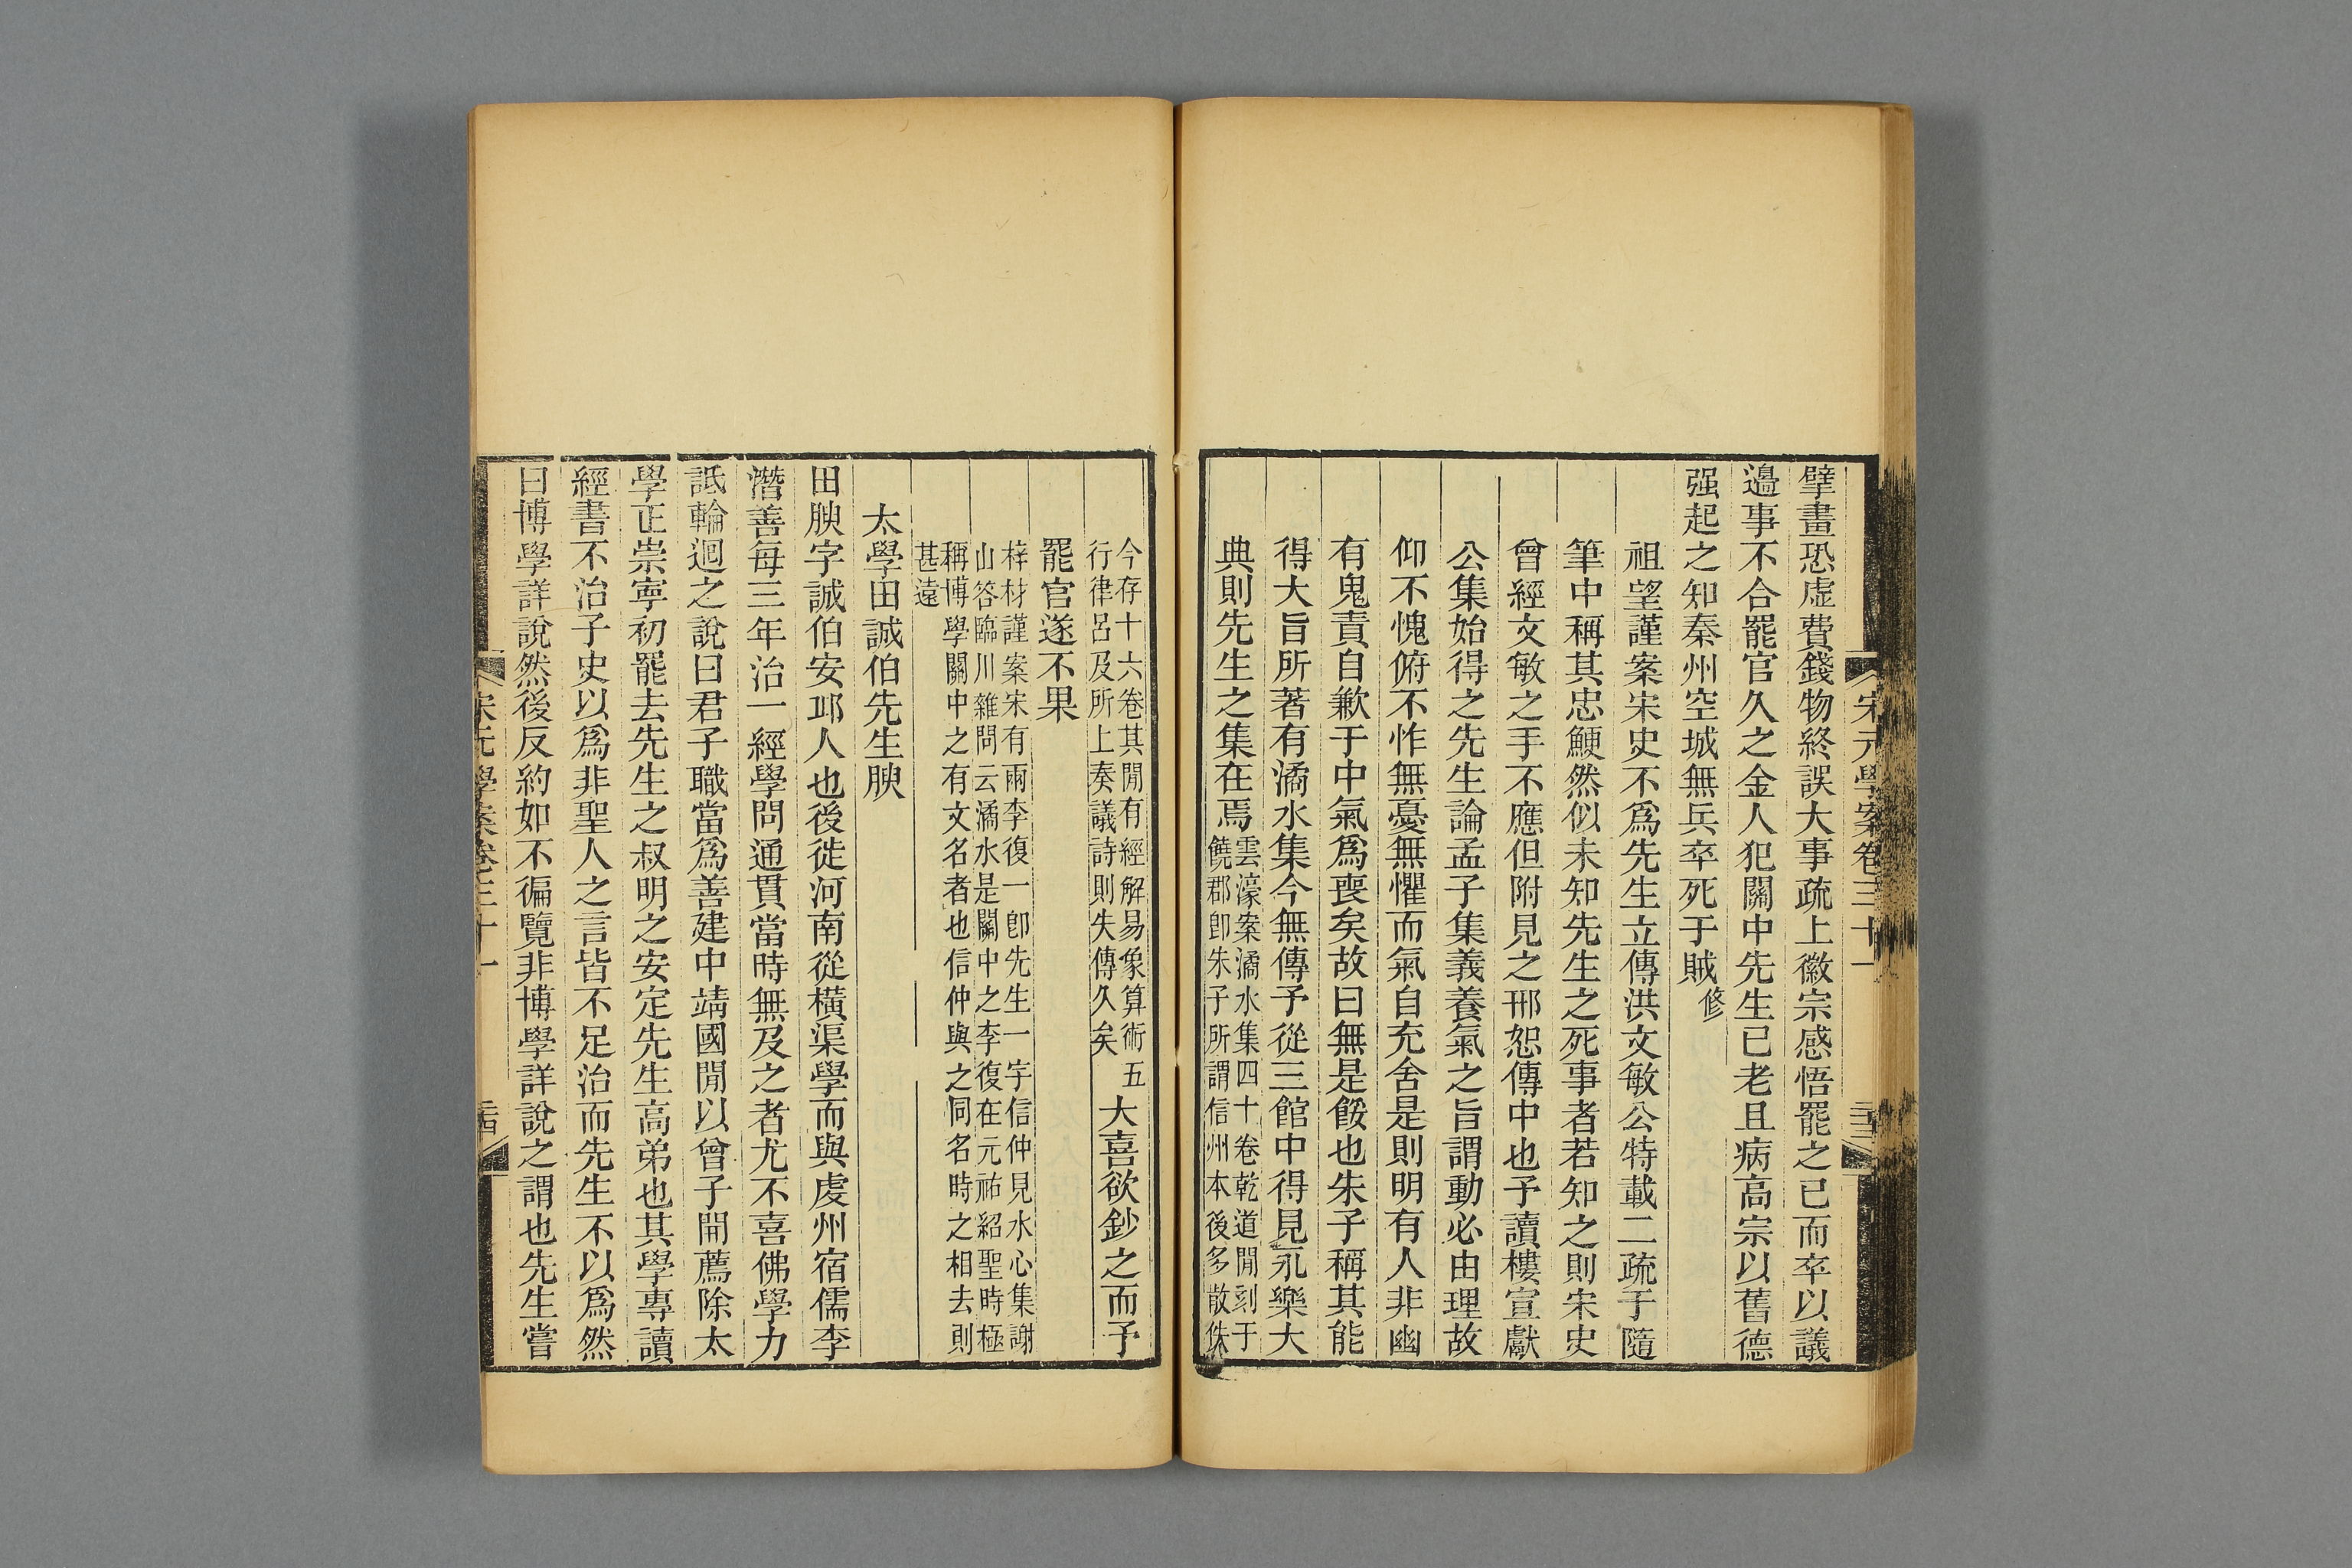 宋元學案卷三十一
擘畫恐虛費錢物終誤大事疏上徽宗感悟罷之已而卒以議
邊事不合罷官久之金人犯關中先生已老且病高宗以舊德
强起之知秦州空城無兵卒死于賊修
祖望謹案宋史不爲先生立傳洪文敏公特載二疏于隨
筆中稱其忠鯁然似未知先生之死事者若知之則宋史
曾經文敏之手不應但附見之邢恕傳中也予讀樓宣獻
公集始得之先生論孟子集義養氣之旨謂動必由理故
仰不愧俯不怍無憂無懼而氣自充舍是則明有人非幽
有鬼責自歉于中氣爲喪矣故曰無是餒也朱子稱其能
得大旨所著有潏水集今無傳予從三館中得見永樂大
典則先生之集在焉
雲濠案潏水集四十卷乾道閒刻于
饒郡卽朱子所謂信州本後多散佚
今存十六卷其閒有經解易象算術五
行律呂及所上奏議詩則失傳久矣
大喜欲鈔之而予
罷官遂不果
梓材謹案宋有兩李復一卽先生一字信仲見水心集謝
山答臨川雜問云潏水是關中之李復在元祐紹聖時極
稱博學關中之有文名者也信仲與之同名時之相去則
甚遠
太學田誠伯先生腴
田腴字誠伯安邱人也後徙河南從橫渠學而與虔州宿儒李
潛善每三年治一經學問通貫當時無及之者尤不喜佛學力
詆輪迴之說曰君子職當爲善建中靖國閒以曾子開薦除太
學正崇寧初罷去先生之叔明之安定先生高弟也其學專讀
經書不治子史以爲非聖人之言皆不足治而先生不以爲然
曰博學詳說然後反約如不徧覽非博學詳說之謂也先生嘗
宋元學案卷三十一